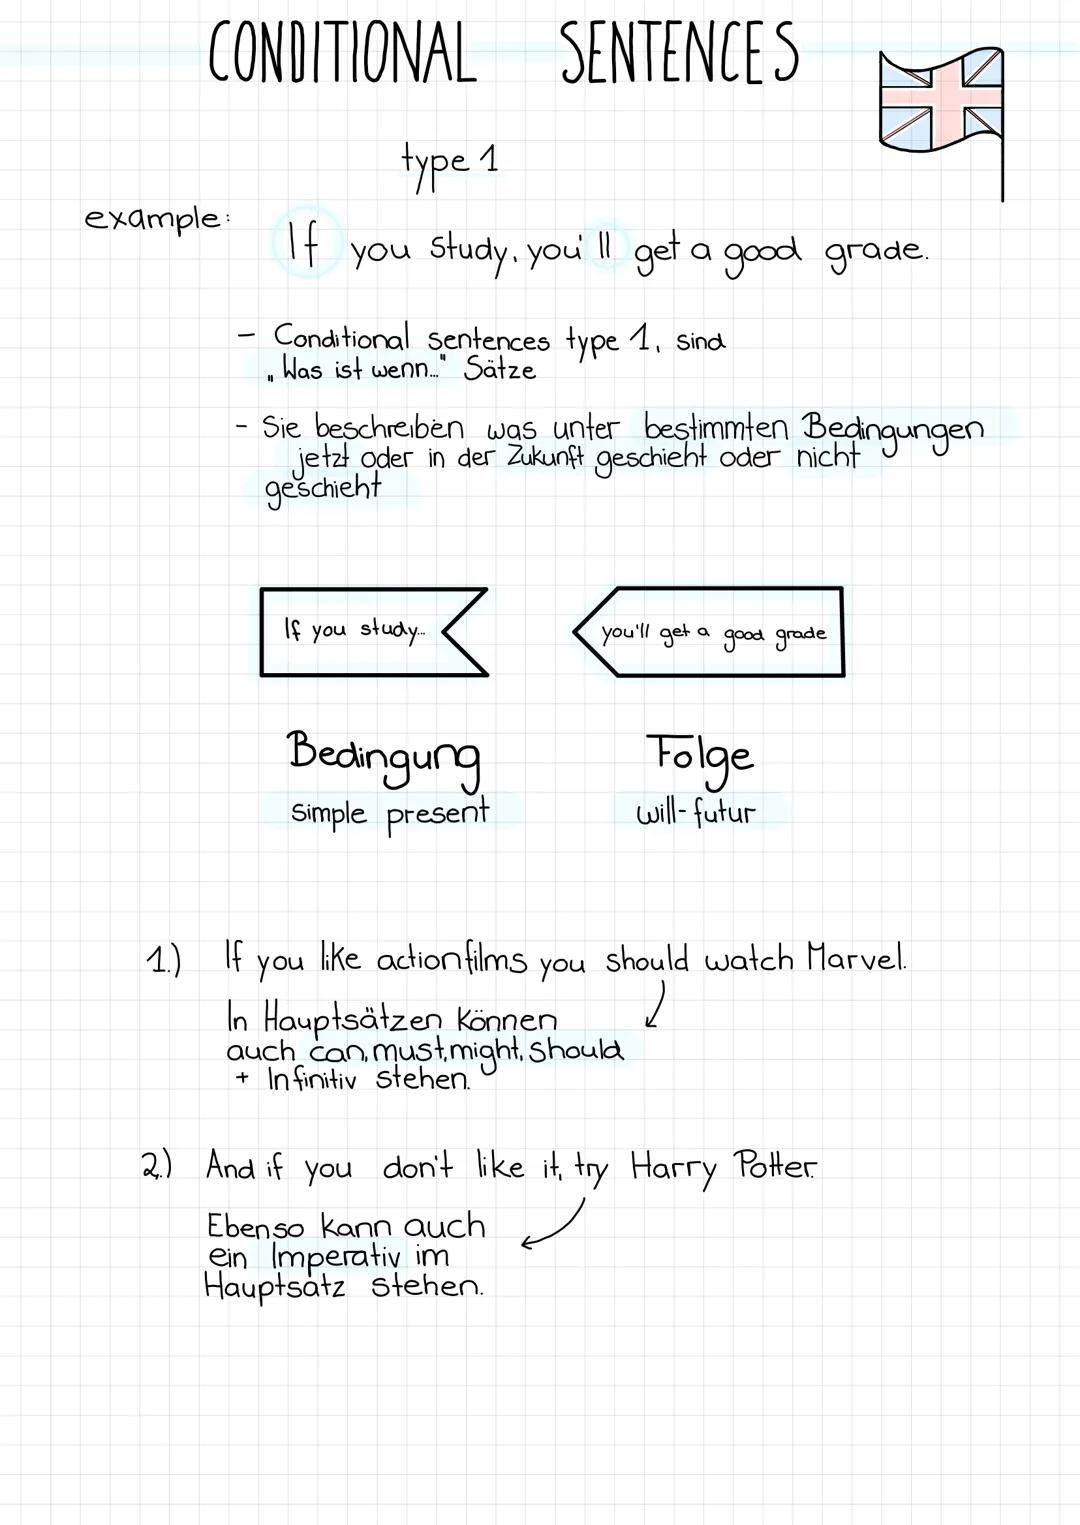 CONDITIONAL SENTENCES
type 1
example:
If you study, you'll get a good grade.
- Conditional sentences type 1, sind
„Was ist wenn..." Sätze
- Sie beschreiben was unter bestimmten Bedingungen
jetzt oder in der Zukunft geschieht oder nicht
geschieht
If you study...
you'll get a good grade
Bedingung
simple present
Folge
will-futur
1.) If you like actionfilms you should watch Marvel.
In Hauptsätzen können
auch can, must, might, should
+ Infinitiv stehen.
2.) And if you don't like it, try Harry Potter.
Ebenso kann auch
ein Imperativ im
Hauptsatz stehen.